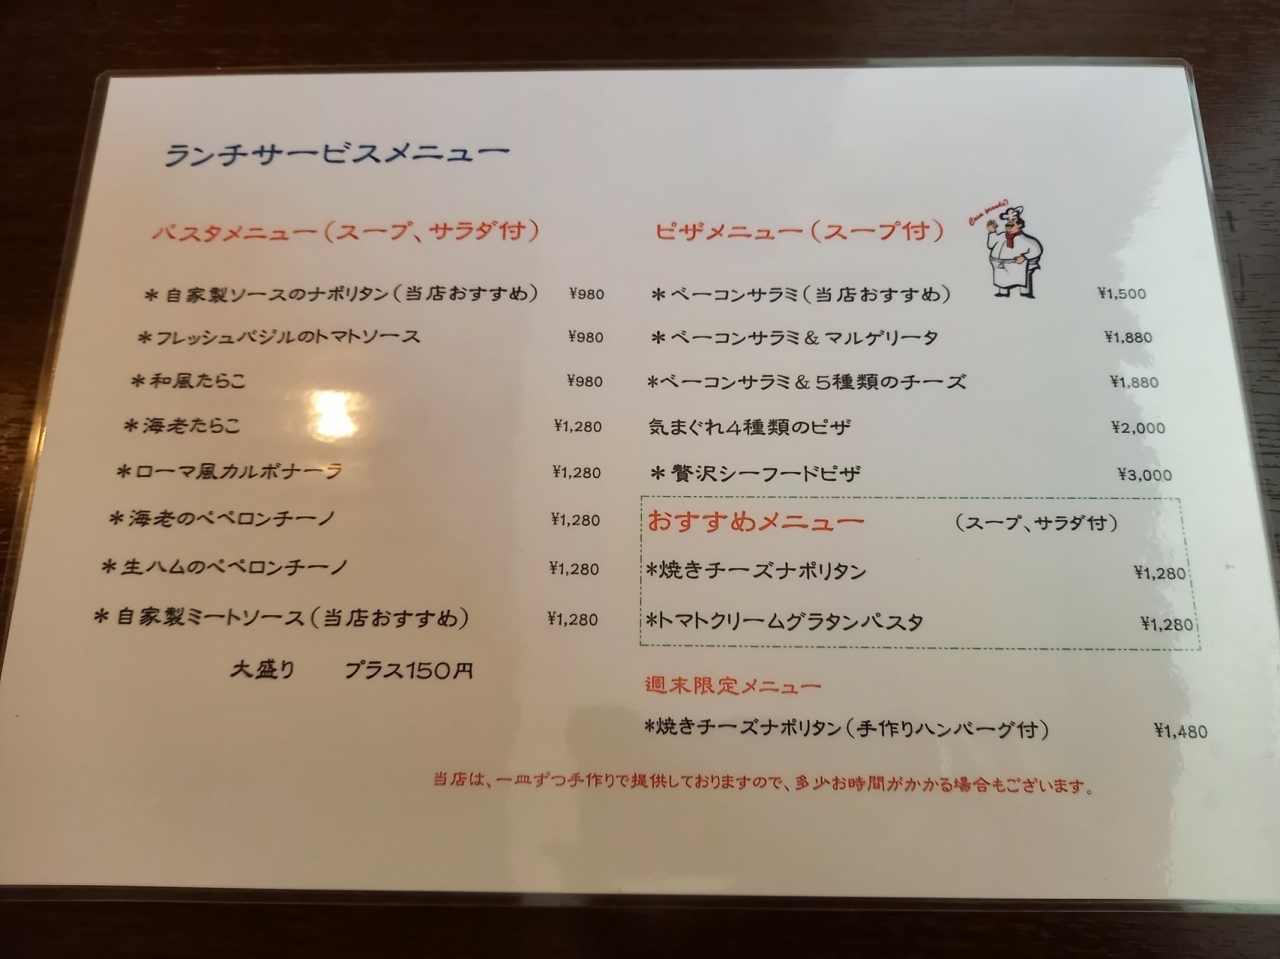 ランチサービスメニュー
パスタメニュー（スープ、サラダ付）
＊自家製ソースのナポリタン（当店おすすめ） ¥980
＊フレッシュバジルのトマトソース ¥980
＊和風たらこ ¥980
＊海老たらこ ¥1,280
＊ローマ風カルボナーラ ¥1,280
＊海老のペペロンチーノ ¥1,280
＊生ハムのペペロンチーノ ¥1,280
＊自家製ミートソース（当店おすすめ） ¥1,280
大盛り プラス150円
ピザメニュー（スープ付）
＊ベーコンサラミ（当店おすすめ） ¥1,500
＊ベーコンサラミ＆マルゲリータ ¥1,880
＊ベーコンサラミ＆５種類のチーズ ¥1,880
気まぐれ４種類のピザ ¥2,000
＊贅沢シーフードピザ ¥3,000
おすすめメニュー （スープ、サラダ付）
＊焼きチーズナポリタン ¥1,280
＊トマトクリームグラタンパスタ ¥1,280
週末限定メニュー
＊焼きチーズナポリタン（手作りハンバーグ付） ¥1,480
当店は、一皿ずつ手作りで提供しておりますので、多少お時間がかかる場合もございます。